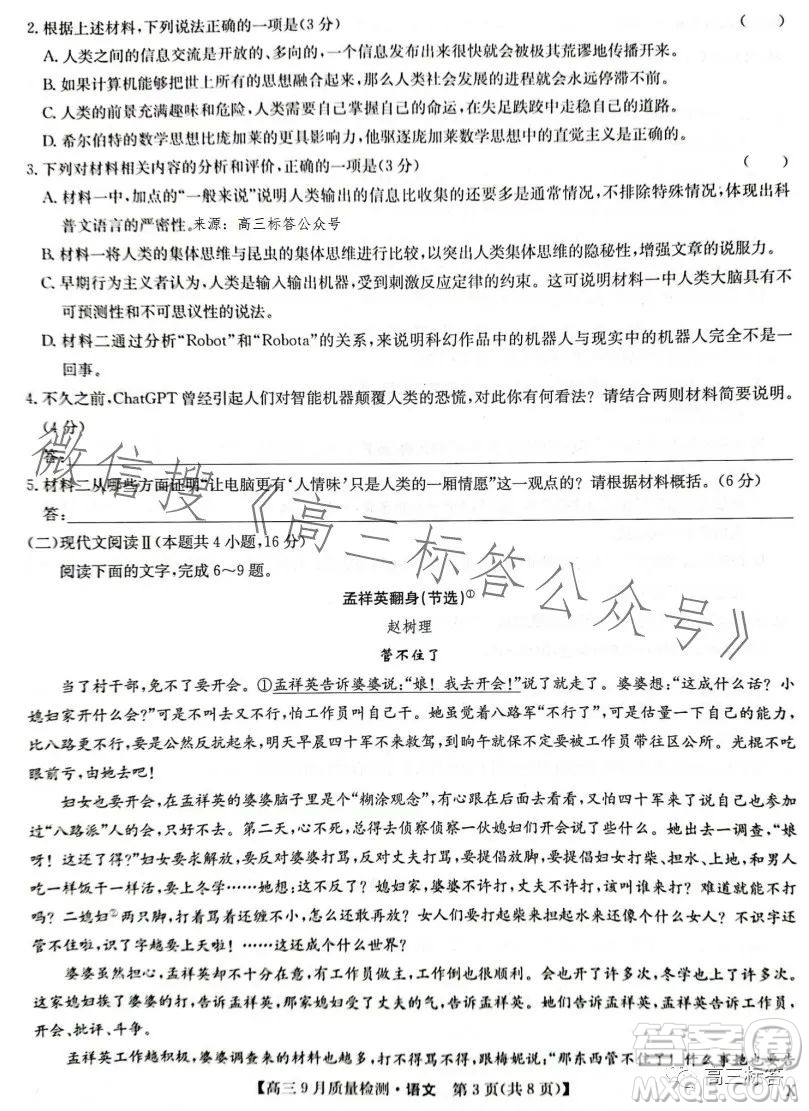 2. 根据上述材料,下列说法正确的一项是(3 分) (　　)
A. 人类之间的信息交流是开放的、多向的,一个信息发布出来很快就会被极其荒谬地传播开来。
B. 如果计算机能把世上所有的思想融合起来,那么人类社会发展的进程就会永远停滞不前。
C. 人类的前景充满趣味和危险,人类只有自己掌握自己的命运,在失足跌跤中学会走自己的道路。
D. 希尔伯特的数学思想比庞加莱的更具影响力,他驱逐庞加莱数学思想中的直觉主义是正确的。
3. 下列对材料相关内容的分析和评价,正确的一项是(3 分) (　　)
A. 材料一中,加点的“一般来说”说明人类输出的信息比收集的还要多得多,不排除特殊情况,体现出科
普文语言的严密性。来源: 高三标答公众号
B. 材料一将人类的集体思维与昆虫的集体思维进行比较,以突出人类集体思维的隐秘性,增强文章的说服力。
C. 早期行为主义者认为,人类是输入输出机器,受到刺激反应定律的约束。这可以说明材料一中人类大脑具有不
可预测性和不可思议性的说法。
D. 材料二通过分析“Robot”和“Robota”的关系,来说明科幻作品中的机器人与现实中的机器人完全不是一
回事。
4. 不久之前,ChatGPT 曾经引起人们对智能机器颠覆人类的恐慌,对此你有何看法? 请结合两则材料简要说明。
(4 分)
答:
5. 材料二从哪些方面证明“让电脑更有‘人情味’只是人类的一厢情愿”这一观点的? 请根据材料概括。(6 分)
答:
(二)现代文阅读Ⅱ(本题共 4 小题,16 分)
阅读下面的文字,完成 6～9 题。
孟祥英翻身(节选)①
赵树理
管不住了
当了村干部,免不了要开会。①孟祥英告诉婆婆说:“娘! 我去开会!”说了就走了。婆婆想:“这成什么话? 小
媳妇家开什么会?”可是不叫去又不行,怕工作员叫自己干。她虽觉着八路军“不行了”,可是估量一下自己的能力,
比八路更不行,要是恶狠狠说个不字,明天早晨四十军不来救驾,到晌午就保不定要被工作员带往区公所。光棍不吃
眼前亏,由她去吧!
妇女也要开会,在孟祥英的婆婆脑子里是个“糊涂观念”,有心跟在后面去看看,又怕四十军来了说自己也参加
过“八路派”人的会,只好不去。第二天,心不死,总得去侦察侦察一伙媳妇们开会说了些什么。她出去一调查,“娘
呀! 这还了得?”妇女要求解放,要反对婆婆打骂,反对丈夫打骂,要提倡放脚,要提倡妇女打柴、担水、上地,和男人
吃一样饭干一样活,要上冬学……她想:这不反了? 媳妇家,婆婆不许打,丈夫不许打,该叫谁来打? 难道就能不打
吗? 二媳妇②两只脚,打着骂着还缠不小,怎么还敢再放? 女人们要打起柴来担起水来还像个什么女人? 不识字还
管不住啦,识了字越要上天啦! ……这还成个什么世界?
婆婆虽然担心,孟祥英却不十分在意,有工作员做主,工作倒很顺利,会也开了许多次,冬学也上了许多次。
这家媳妇挨了婆婆的打,告诉孟祥英,那家媳妇受了丈夫的气,告诉孟祥英。她们告诉孟祥英,孟祥英告诉工作员,
开会、批评、斗争。
孟祥英工作越积极,婆婆调查来的材料也越多,打不得骂不得,跟梅妮③说:“那东西管不住了! 什么事她也要告
高三 9 月质量检测·语文　第 3 页(共 8 页)
微信搜《高三标答公众号》
答案圈
MXQE.COM
高三标答